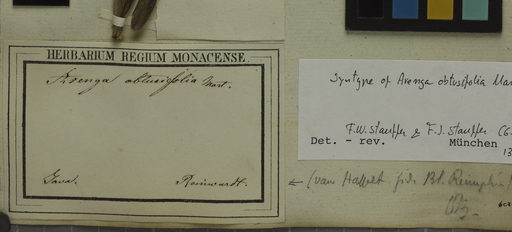 HERBARIUM REGIUM MONACENSE.
Arenga obtusifolia Mart.
Java. Reinwardt.
Syntype of Arenga obtusifolia Mar
F.W. Stauffer & F.J. Stauffer (G
Det. - rev. München
13
← (van Hasselt fide Bl. Rumphia